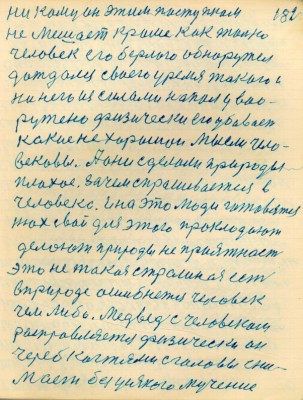 ни кому он этим поступком 181
не мешает кроше как только
человек его берлого обноружел
дождалса своего уремя такого и
на него из силами напал и воо-
ружено физически его убевает
какие не хорошии мысли чело-
вековы. А они сделали природы
плохое. Зачем спрашивается в
человеко. и на это люди готовятся
свой для этого прокладоют
делоют природы не приятност
это не такая страшная ест
вприроде ошибнется человек
чем либо. Медвед с человеком
расправляется физически он
через когтями сголовы сни-
маети без усякого мучение